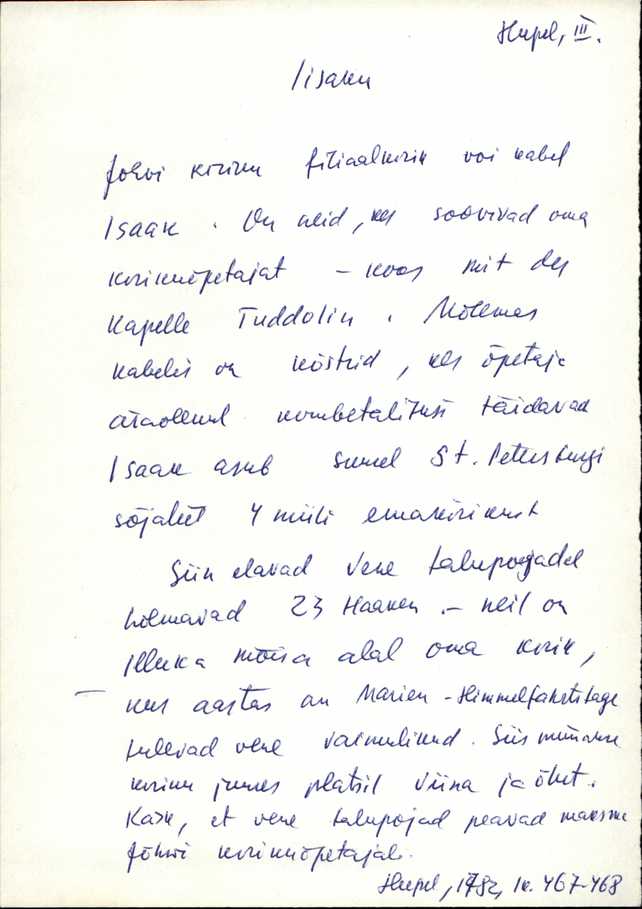 Hupel, III.
Iisaku
Jõhvi kiriku filiaalkirik või kabel
Isaak. On neid, kes soovivad oma
kirikuõpetajat – koos mit der
Kapelle Tuddolin. Mõlemas
kabelis on köstrid, kes õpetaja
äraolekul kombetalitusi täidavad
Isaak asub suurel St. Petersburgi
sõjateel 4 miili emakirikust
Siin elavad vene talupoegadel
hõlmavad 23 Haaken. – neil on
Illuka mõisa alal oma kirik,
kus aastas an Marien-Himmelfahrtstage
tulevad vene vaimulikud. Siis müüakse
kiriku juures platsil viina ja õlut.
Käsk, et vene talupojad peavad maksma
Jõhvi kirikuõpetajale.
Hupel, 1782, lk. 467-468